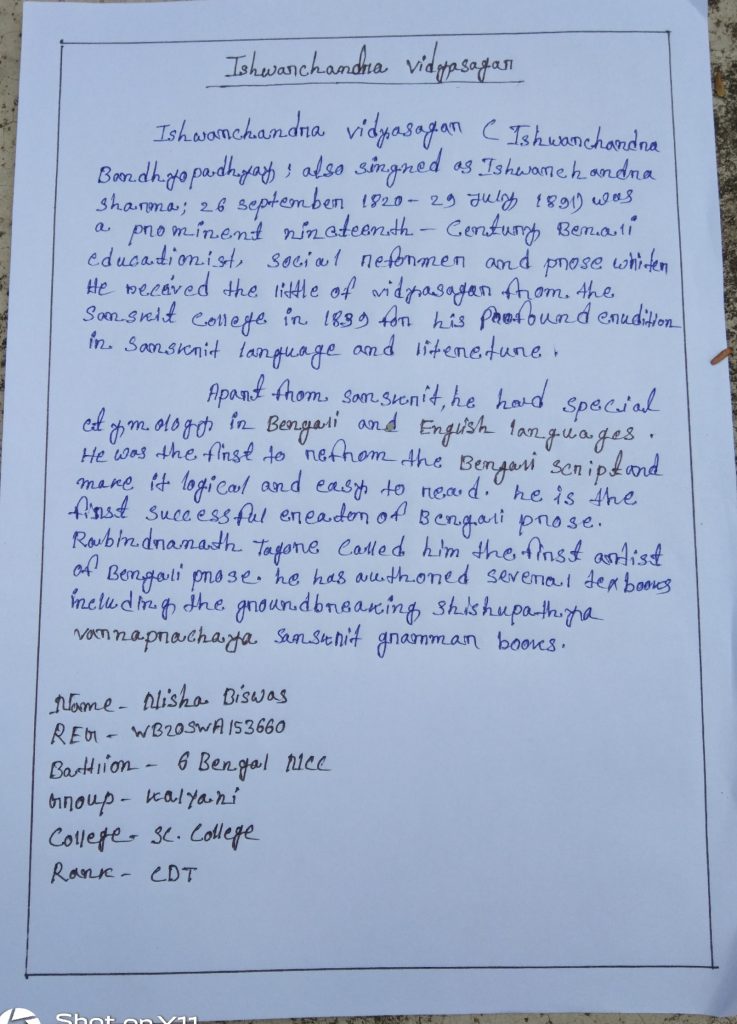 Ishwarchandra vidyasagar
Ishwarchandra vidyasagar ( Ishwarchandra
Bandhyopadhyay ; also singned as Ishwarchandra
sharma; 26 september 1820 - 29 July 1891) was
a prominent nincteenth - Century Benali
educationist, social reformer and prose whiter
He received the little of vidyasagar from the
Sanskrit College in 1839 for his profound erudition
in sanskrit language and litereture.
Apart from sanskrit, he had special
etymology in Bengali and English languages.
He was the first to refrom the Bengali script and
make it logical and easy to read. he is the
first successful creator of Bengali prose.
Rabindranath Tagore Called him the first artist
of Bengali prose. he has authored several texbooks
including the groundbreaking shishupathya
varnaprachaya sanskrit grammar books.
Name - Nisha Biswas
REG - WB20SWA153660
Battlion - 6 Bengal NCC
Group - Kalyani
College - SC. College
Rank - CDT
Shot on Y11